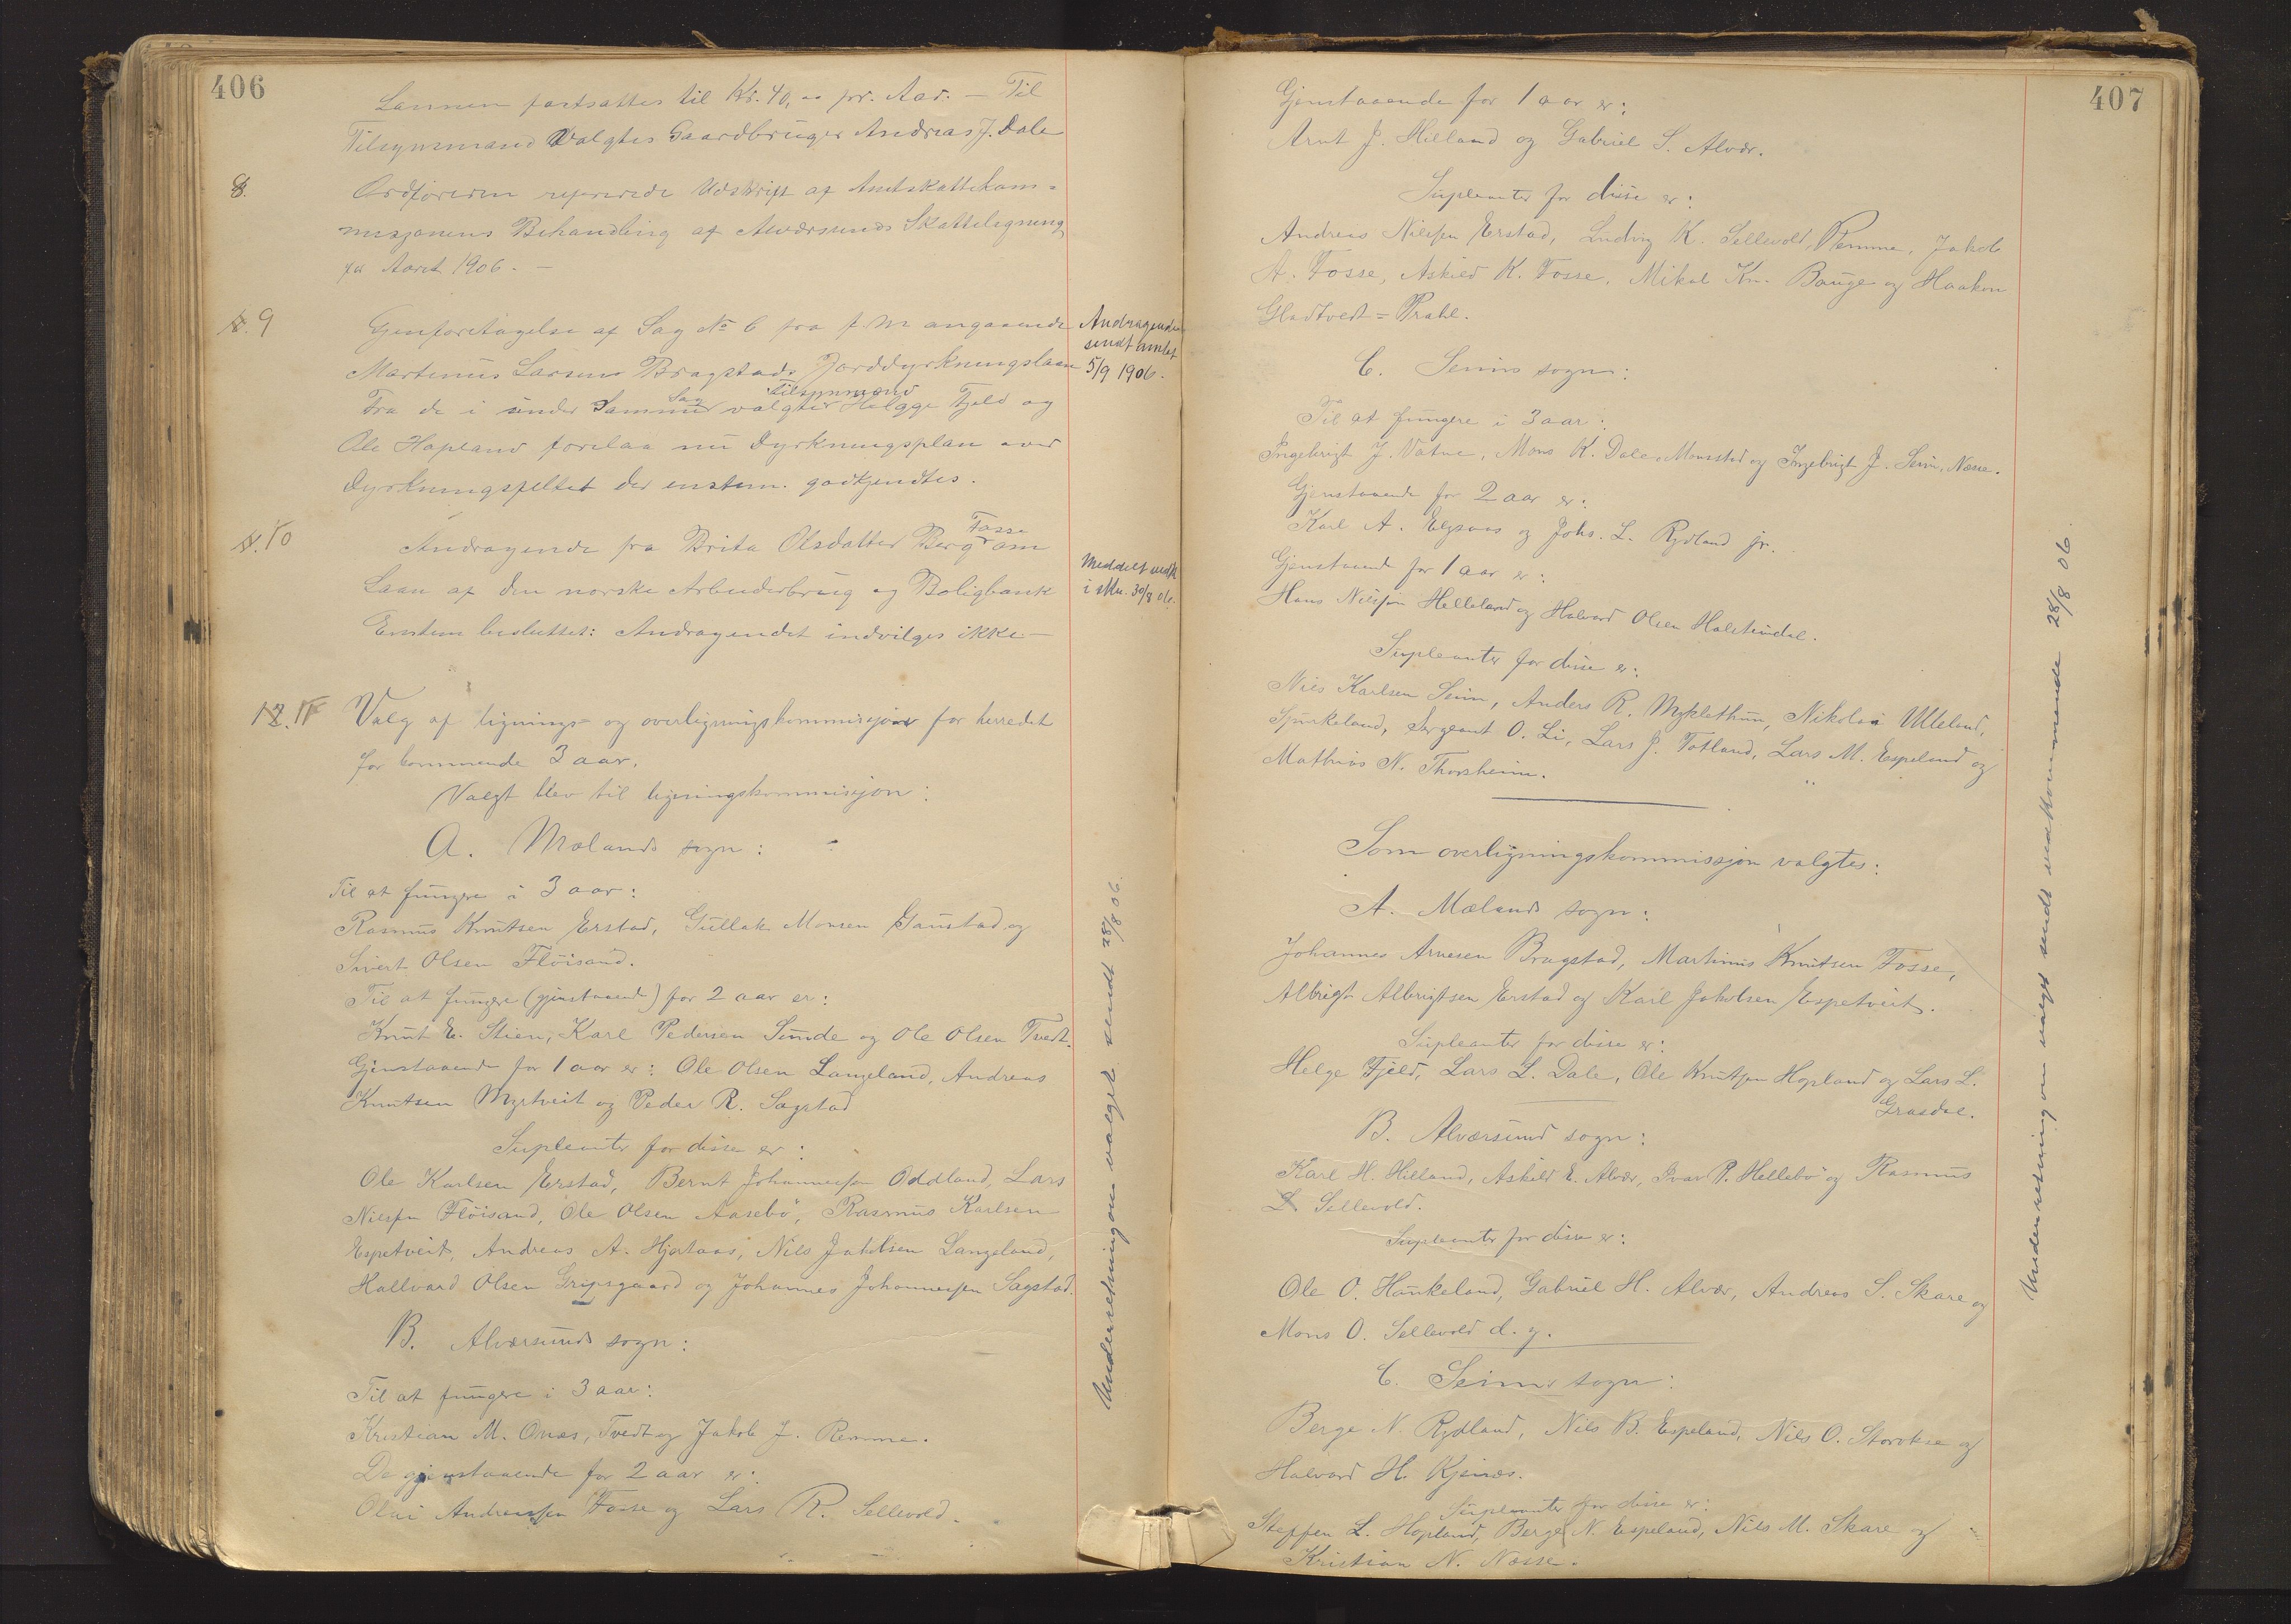 406
Lønnen fastsattes til Kr. 40,00 pr. Aar. — Til
Tilsynsmand valgtes Gaardbruger Andreas J. Dale
8. Ordføreren refererede Udskrift af Amtskattekom-
misjonens Behandling af Alversunds Skatteligning
for Aaret 1906. —
9 Genforetagelse af Sag No 6 fra f. M angaaende
Martinus Larsens Bragstads Jorddyrkningslaan
Fra de i under Samme Sag valgte Tilsynsmænd Helgge Fjeld og
Ole Hopland forelaa nu Dyrkningsplan over
Dyrkningsfeltet der enstem. godkjendtes.
Andragende
sendt amtet
5/9 1906.
10 Andragende fra Brita Olsdatter Berg Fosse om
Laan af den norske Arbeiderbrug og Boligbank
Enstem besluttet: Andragendet indvilges ikke —
Meddelt vedk
i Mu. 30/8 06.
12. 11 Valg af lignings- og overligningskommisjon for herredet
for kommende 3 aar.
Valgt blev til ligningskommisjon:
A. Mælands sogn:
Til at fungere i 3 aar:
Rasmus Knutsen Erstad, Gullak Monsen Gaustad og
Sivert Olsen Fløisand.
Til at fungere (gjenstaaende) for 2 aar er:
Knut E. Stien, Karl Pedersen Sunde og Ole Olsen Tvedt.
Gjenstaaende for 1 aar er: Ole Olsen Langeland, Andreas
Knutsen Myrtveit og Peder R. Sagstad
Supleanter for disse er:
Ole Karlsen Erstad, Bernt Johannessen Oddland, Lars
Nilssen Fløisand, Ole Olsen Aasebø, Rasmus Karlsen
Espetveit, Andreas A. Hjertaas, Nils Jakobsen Langeland,
Hallvard Olsen Gripsgaard og Johannes Johannessen Sagstad.
B. Alversunds sogn:
Til at fungere i 3 aar:
Kristian M. Onæs, Tvedt og Jakob J. Remme.
De gjenstaaende for 2 aar er:
Olai Andreassen Fosse og Lars R. Sellevold.
Underretning om valget sendt 28/8 06.
407
Gjenstaaende for 1 aar er:
Arnt J. Hilland og Gabriel S. Alver.
Supleanter for disse er:
Andreas Nilssen Erstad, Ludvig K. Sellevold, Remme, Jakob
A. Fosse, Askild K. Fosse, Mikal Kn. Bauge og Haakon
Gladtvedt = Prahl.
C. Seims sogn:
Til at fungere i 3 aar:
Ingebrigt J. Vatne, Mons K. Dale, Monsstad og Ingebrigt J. Seim, Næsse.
Gjenstaaende for 2 aar er:
Karl A. Elgsaas og Johs. L. Rydland jr.
Gjenstaaende for 1 aar er:
Hans Nilssen Helleland og Halvard Olsen Holstendal.
Supleanter for disse er:
Nils Karlsen Seim, Anders R. Myklethun, Nikolai Ulleland,
Spurkeland, Sergeant O. Li, Lars J. Totland, Lars M. Espeland og
Mathias N. Thorsheim.
Som overligningskommissjon valgtes:
A. Mælands sogn:
Johannes Arnesen Bragstad, Martinus Knutsen Fosse,
Albrigt Albrigtsen Erstad og Karl Jakobsen Espetveit.
Supleanter for disse er:
Helge Fjeld, Lars L. Dale, Ole Knutsen Hopland og Lars L.
Grasdal.
B. Alversund sogn:
Karl H. Hilland, Askild E. Alver, Ivar R. Hellebø og Rasmus
L Sellevold.
Supleanter for disse er:
Ole O. Haukeland, Gabriel H. Alver, Andreas S. Skare og
Mons O. Sellevold d. y.
C. Seims sogn:
Berge N. Rydland, Nils B. Espeland, Nils O. Storoksе og
Halvard H. Kjenæs.
Supleanter for disse er:
Steffen L. Hopland, Berge N. Espeland, Nils M. Skare og
Kristian N. Næsse.
Underretning om valget sendt vedkommende 28/8 06.